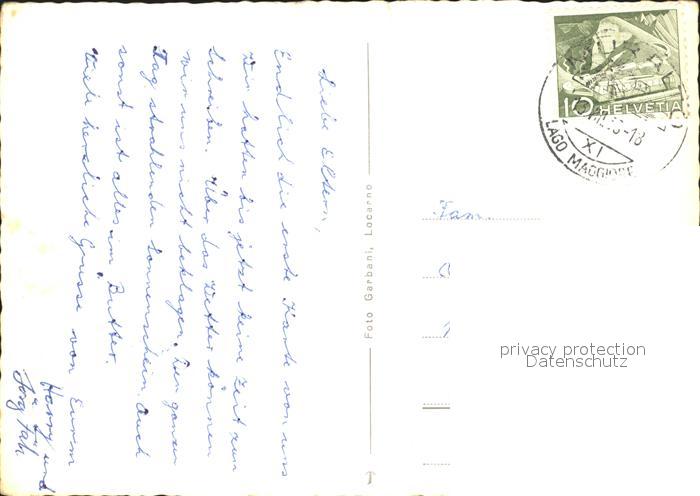 Liebe Eltern,
Endlich die erste Karte von uns
Wir hatten bis jetzt keine Zeit zum
schreiben. Über das Wetter können
wir uns nicht beklagen. Den ganzen
Tag strahlenden Sonnenschein. Auch
sonst ist alles im Butter.
Viele herzliche Grüsse von Eurem
Harry und
Foto Garbani, Locarno
10 HELVETIA
XI
LAGO MAGGIORE
Fam.
privacy protection
Datenschutz